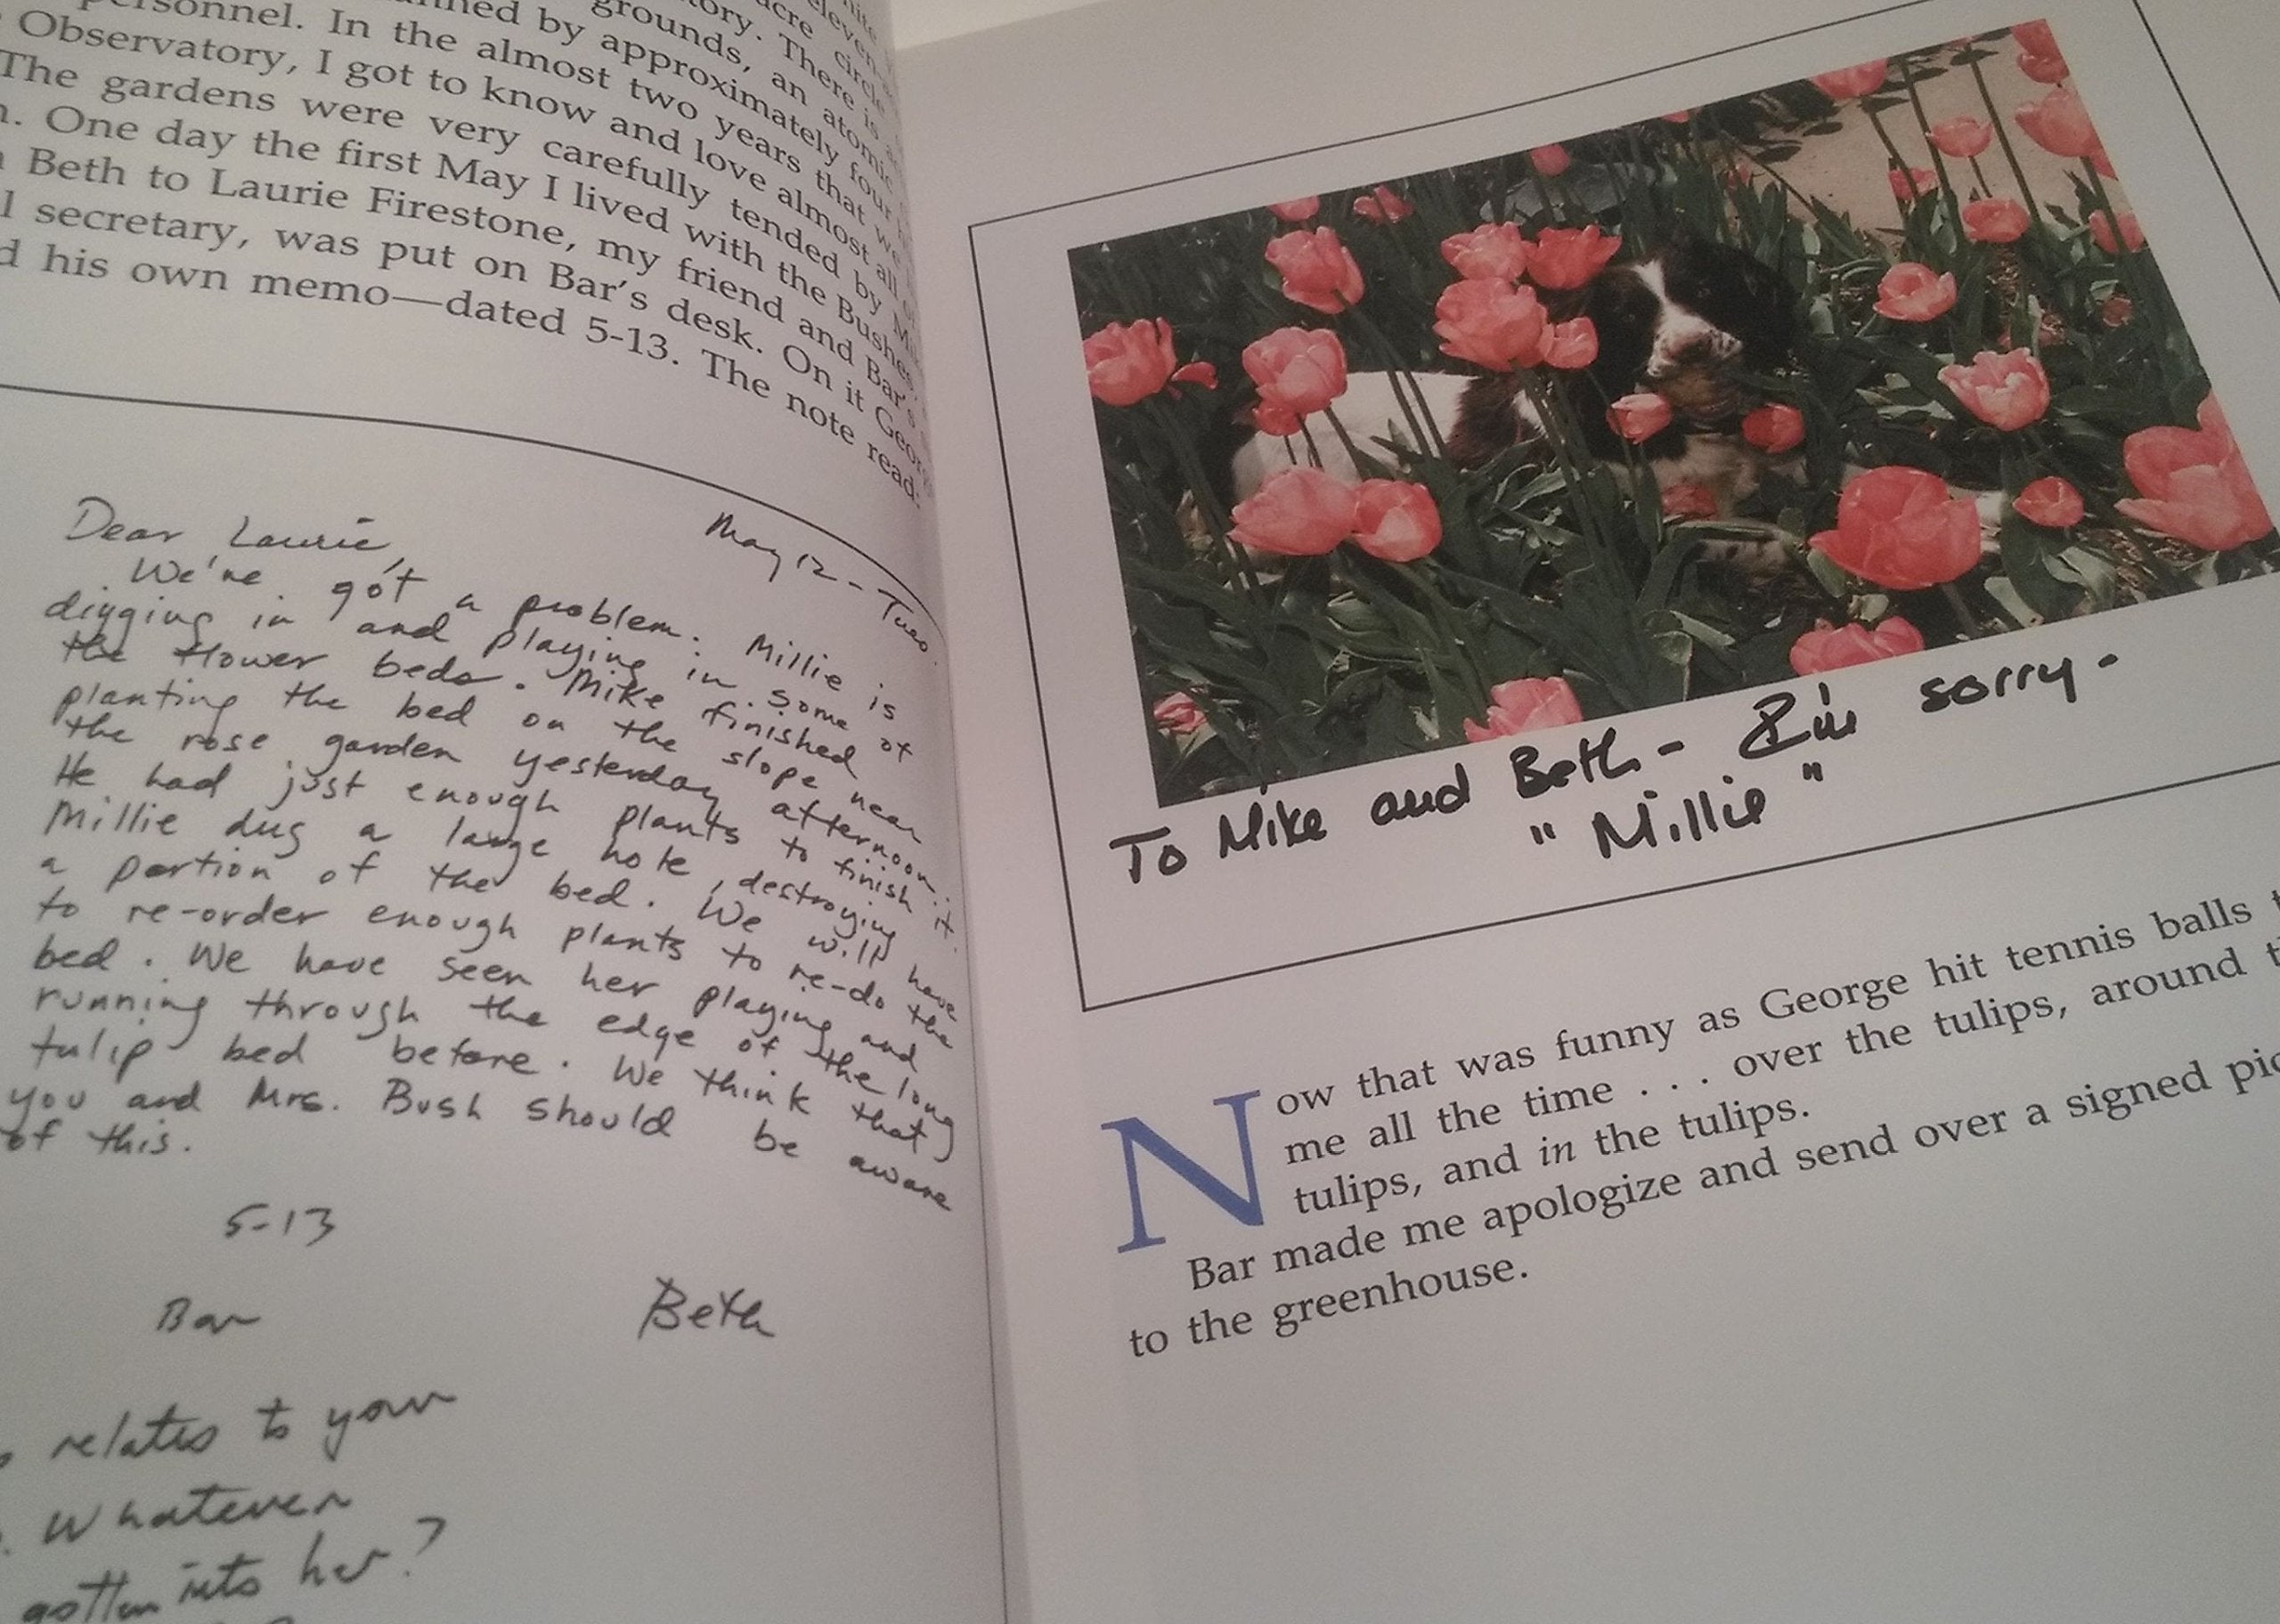 personnel. In the almost two years that we
Observatory, I got to know and love almost all
The gardens were very carefully tended by
One day the first May I lived with the Bushes,
Beth to Laurie Firestone, my friend and Bar's
secretary, was put on Bar's desk. On it
his own memo—dated 5-13. The note read:
May 12 - Tues.
Dear Laurie,
We've got a problem. Millie is
digging in and playing in some of
the flower beds. Mike finished
planting the bed on the slope near
the rose garden yesterday afternoon.
He had just enough plants to finish it.
Millie dug a large hole, destroying
a portion of the bed. We will have
to re-order enough plants to re-do the
bed. We have seen her playing and
running through the edge of the long
tulip bed before. We think that
you and Mrs. Bush should be aware
of this.
Beth
5-13
Bar
relates to your
Whatever
gotten into her?
To Mike and Beth - I'm sorry -
"Millie"
Now that was funny as George hit tennis balls
me all the time . . . over the tulips, around
tulips, and in the tulips.
Bar made me apologize and send over a signed
to the greenhouse.